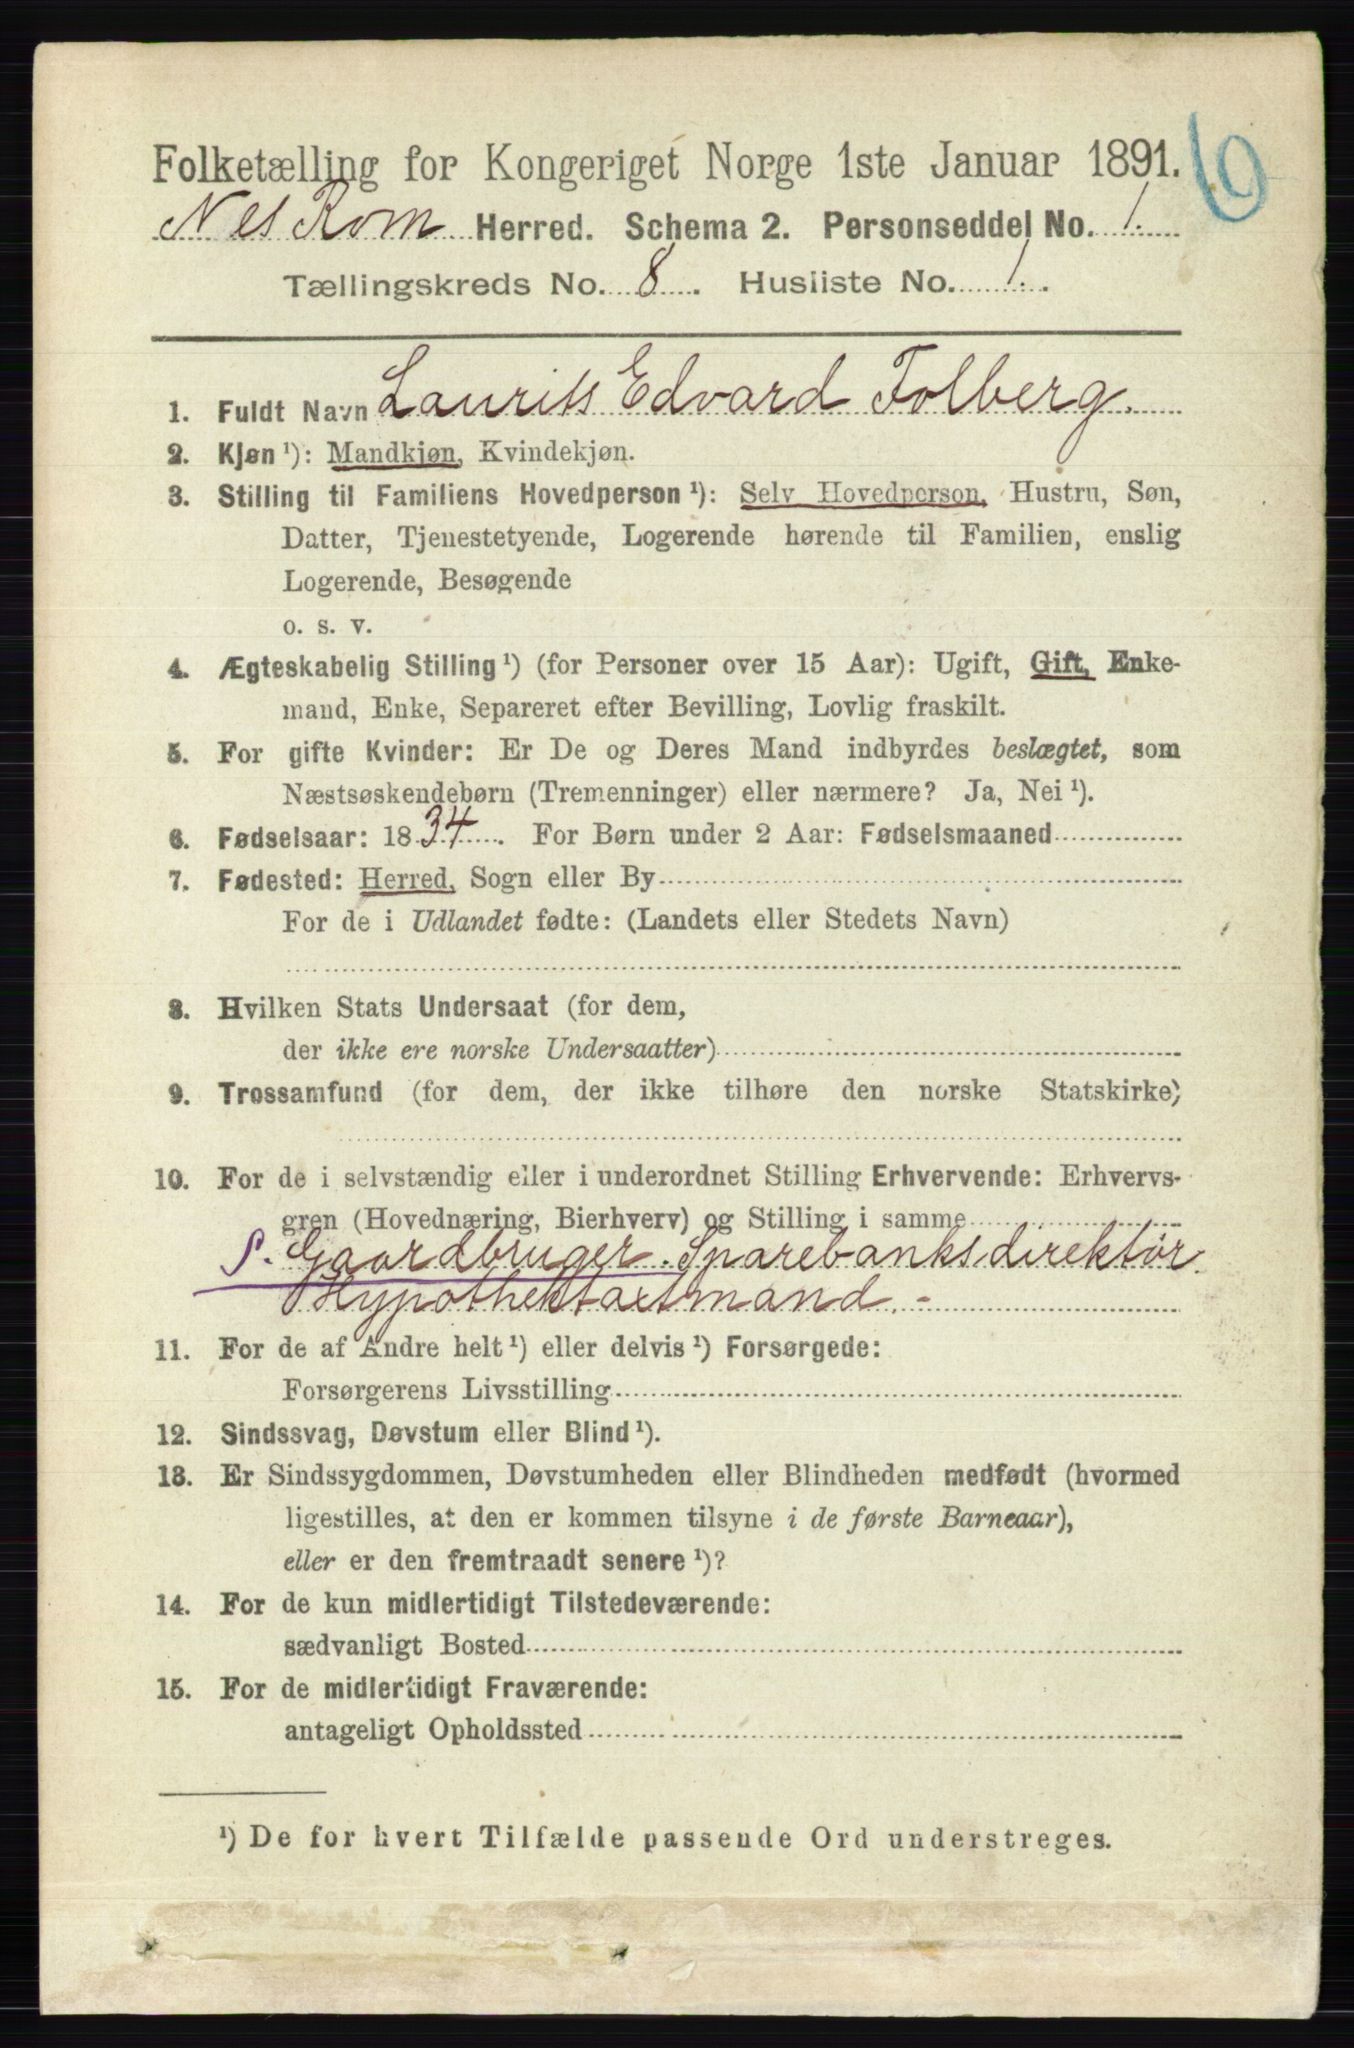 Folketælling for Kongeriget Norge 1ste Januar 1891.
6
Nes Rom Herred. Schema 2. Personseddel No. 1.
Tællingskreds No. 8. Husliste No. 1.
1. Fuldt Navn Laurits Edvard Folberg.
2. Kjøn ¹): Mandkjøn, Kvindekjøn.
3. Stilling til Familiens Hovedperson ¹): Selv Hovedperson, Hustru, Søn,
Datter, Tjenestetyende, Logerende hørende til Familien, enslig
Logerende, Besøgende
o. s. v.
4. Ægteskabelig Stilling ¹) (for Personer over 15 Aar): Ugift, Gift, Enke-
mand, Enke, Separeret efter Bevilling, Lovlig fraskilt.
5. For gifte Kvinder: Er De og Deres Mand indbyrdes beslægtet, som
Næstsøskendebørn (Tremenninger) eller nærmere? Ja, Nei ¹).
6. Fødselsaar: 1834. For Børn under 2 Aar: Fødselsmaaned
7. Fødested: Herred, Sogn eller By
For de i Udlandet fødte: (Landets eller Stedets Navn)
8. Hvilken Stats Undersaat (for dem,
der ikke ere norske Undersaatter)
9. Trossamfund (for dem, der ikke tilhøre den norske Statskirke)
10. For de i selvstændig eller i underordnet Stilling Erhvervende: Erhvervs-
gren (Hovednæring, Bierhverv) og Stilling i samme
S. Gaardbruger. Sparebanksdirektør.
Hypothektaxtmand. -
11. For de af Andre helt ¹) eller delvis ¹) Forsørgede:
Forsørgerens Livsstilling
12. Sindssvag, Døvstum eller Blind ¹).
13. Er Sindssygdommen, Døvstumheden eller Blindheden medfødt (hvormed
ligestilles, at den er kommen tilsyne i de første Barneaar),
eller er den fremtraadt senere ¹)?
14. For de kun midlertidigt Tilstedeværende:
sædvanligt Bosted
15. For de midlertidigt Fraværende:
antageligt Opholdssted
¹) De for hvert Tilfælde passende Ord understreges.